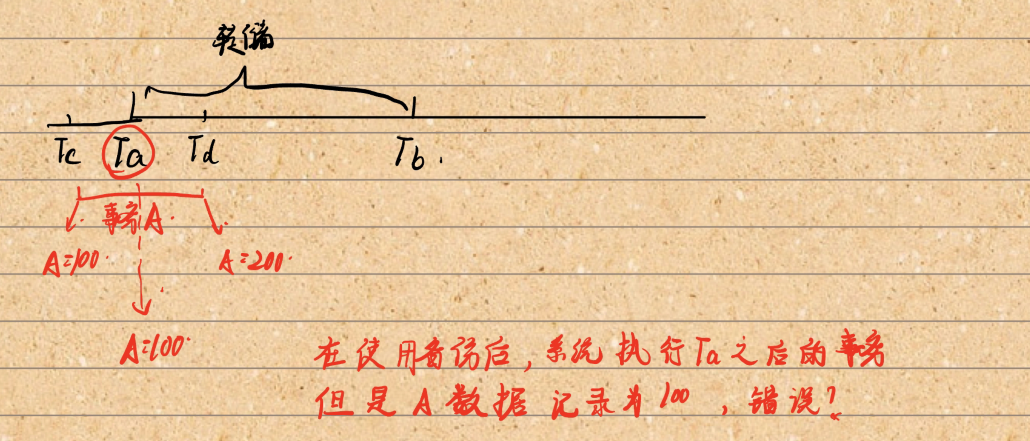 转储
Tc Ta Td Tb.
事务A.
A=100. A=200.
A=100.
在使用备份后,系统执行Ta之后的事务
但是A数据记录为100,错误?